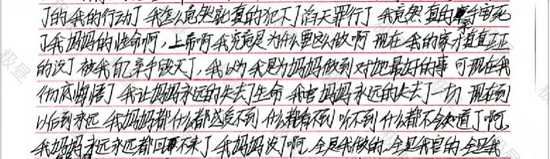 了的我的行动了我怎么竟然就真的犯下了滔天罪行了我竟然真的害死
了我妈妈的性命啊，上帝啊我究竟是为什么要这么做啊现在我的家才真真正正
的没了被我自己亲手毁灭了，我以为我是为妈妈做到对她最好的事可现在我
我让妈妈永远的失去了生命我害妈妈永远的失去了一切现在到
以后到永远我妈妈都什么都感觉不到什么都看不到听不到什么都不会知道了啊，
我妈妈永远永远都回不来了我妈妈没了啊，全是我做的，全是我害的全是我